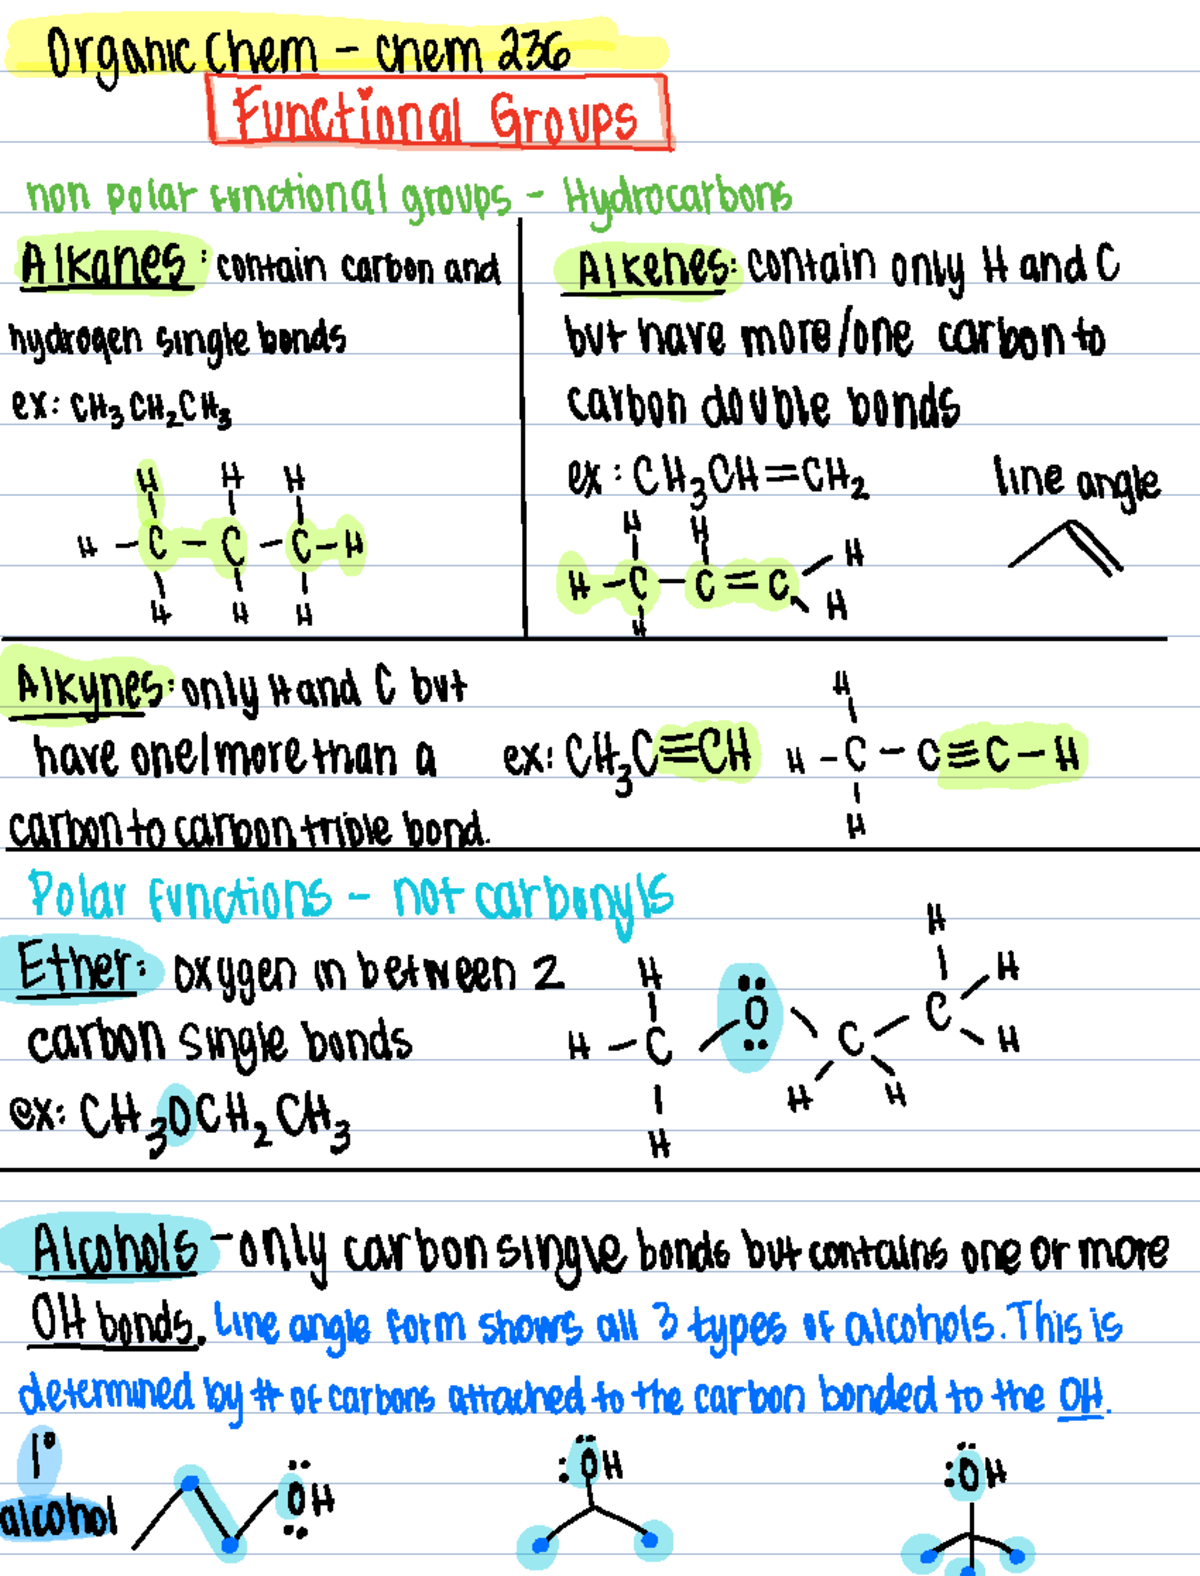 Organic Chem - Chem 236
Functional Groups
non polar functional groups - Hydrocarbons
Alkanes: contain carbon and
hydrogen single bonds
ex: CH₃CH₂CH₃
H H H
H - C - C - C - H
H H H
Alkenes: contain only H and C
but have more/one carbon to
carbon double bonds
ex: CH₃CH=CH₂
line angle
H H
H - C - C = C H
H
H
Alkynes: only H and C but
have one/more than a
carbon to carbon triple bond.
ex: CH₃C≡CH
H
H - C - C ≡ C - H
H
Polar functions - not carbonyls
Ether: oxygen in between 2
carbon single bonds
ex: CH₃OCH₂CH₃
H
H - C O C C H
H
H H H
H
Alcohols - only carbon single bonds but contains one or more
OH bonds. Line angle form shows all 3 types of alcohols. This is
determined by # of carbons attached to the carbon bonded to the OH.
1°
alcohol
:OH
:OH
:OH